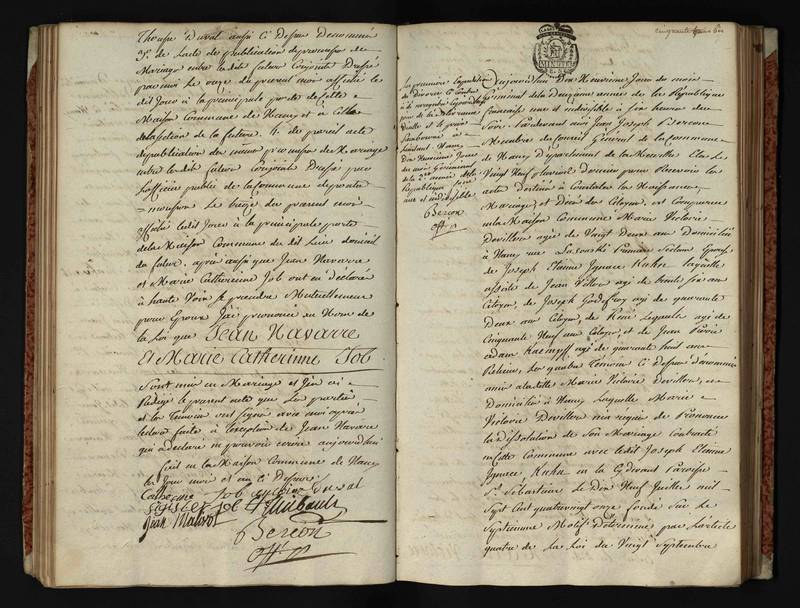 Thomse Duval aussi Ci Dessus Denommé
3°. de Lacte de publication de promesse de
Mariage entre ledit futur Conjoints Dressé
par moi Le onze du present mois affiché le
dit Jour à la principale porte de cette
Maison Commune de Nancy et à Celle
de la Section de la future. 4°. de pareil acte
de publication des mêmes promesses de Mariage
entre ledit futur Conjoint Dressé par
Lofficier public de la Commune de ponta-
mousson Le treize du present mois
affiché ledit Jour à la principale porte
de la Maison Commune du dit Lieu domicil
du futur, après aussi que Jean Navarre
et Marie Catherinne Job ont eu déclaré
à haute Voix se prendre Mutuellement
pour Epoux Jai prononcé au Nom de
la Loi que Jean Navarre
Et Marie Catherinne Job
Sont unis en Mariage et J'en ai
Redigé le present acte que Les parties
et les Temoins ont Signé avec moi après
lecture faite à l'exception de Jean Navarre
qui a declaré ne pouvoir ecrire aujourd'hui
Fait en la Maison Commune de Nancy
les Jour mois et an Ci Dessus
Catherine Job Duval
Thiebault
Jean
Bercon
off. p.
cinquante
MINUTE
La premiere Expedition
de Divorce Ci Contre
Nancy
Dix Neuvieme Jour
du mois Germinal
de la 2e année de la
Republique française
une et indivisible
Bercon
off. p.
Aujourd'hui Dix Neuvieme Jour du mois
Germinal de la Deuxieme année de la Republique
francaise une et indivisible à six heures du
Soir. Pardevant moi Jean Joseph Bercon
Membre du Conseil Général de la Commune
de Nancy Departement de la Meurthe Elu Le
Vingt Neuf pluviose Dernier pour Recevoir les
acte Destiné à Constater la Naissance,
Mariage et Decès des Citoyens, est Comparue
en la Maison Commune Marie Victoire
Devillon agée de Vingt Deux ans Domiciliée
à Nancy rue Premiere Section Epouse
de Joseph Etienne Ignace Kuhn laquelle
assisté de Jean agé de trente six ans
Citoyen, de Joseph Godefroy agé de quarante
Deux ans Citoyen, de René agé de
Cinquante Neuf ans Citoyen, et de Jean Pierre
adam agé de quarante huit ans
les quatre Temoins Ci Dessus dénommés
amis à ladite Marie Victoire Devillon, et
Domiciliés à Nancy Laquelle Marie
Victoire Devillon m'a requis de Prononcer
la dissolution de Son Mariage Contracté
en Cette Commune avec ledit Joseph Etienne
Ignace Kuhn en la Cydevant Paroisse
St. Sébastien Le Dix Neuf Juillet mil
Sept cent quatrevingt onze fondé Sur Le
Septieme Motif Déterminé par L'article
quatre de La Loi du Vingt Septembre